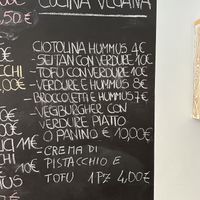 CUCINA VEGANA
,50€
CIOTOLINA HUMMUS 4€
- SEITAN CON VERDURE 10€
- TOFU CON VERDURE 10€
- VERDURE E HUMMUS 8€
- BROCCOLETTI E HUMMUS 7€
- VEGIBURGHER CON
VERDURE PIATTO
O PANINO € 10,00€
- CREMA DI
PISTACCHIO E
TOFU 1 PZ 4,00€